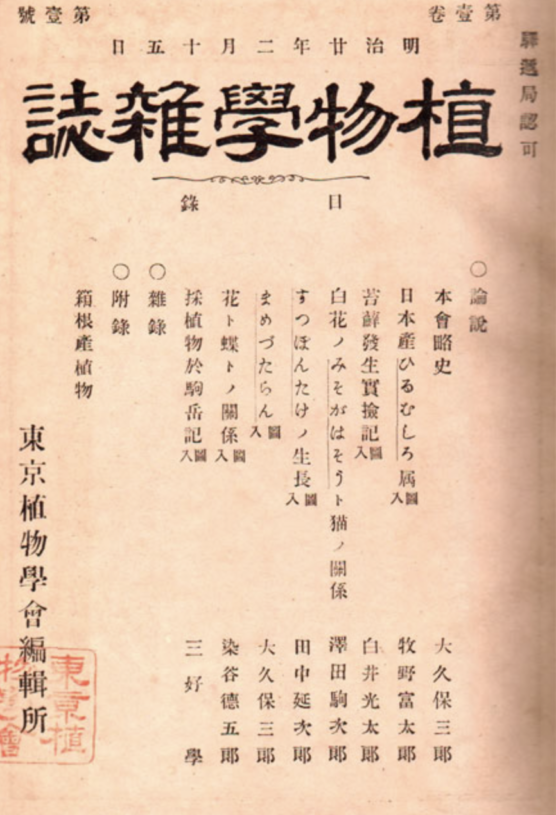 驛遞局認可
第壹卷
第壹號
明治廿年二月十五日
植物學雑誌
目錄
〇論說
本會略史 大久保三郎
日本產ひるむしろ屬圖入 牧野富太郎
苔蘚發生實撿記圖入 白井光太郎
白花ノみそがはそうト猫ノ關係 澤田駒次郎
すつぽんたけノ生長圖入 田中延次郎
まめづたらん圖入 大久保三郎
花ト蝶トノ關係圖入 染谷德五郎
採植物於駒岳記圖入 三好學
〇雜錄
〇附錄
箱根產植物
東京植物學會編輯所
東京植